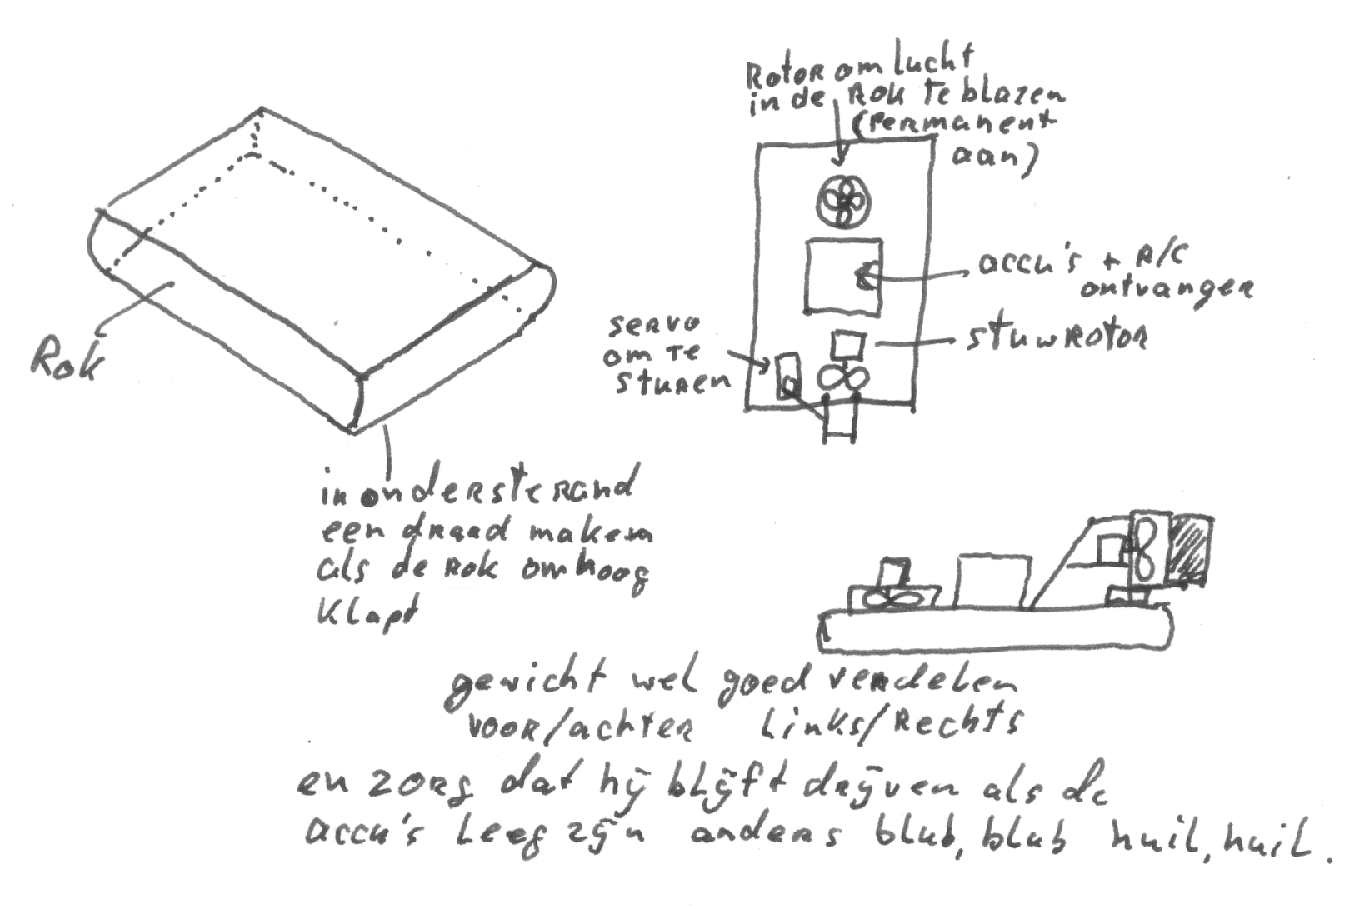 Rotor om lucht
in de Rok te blazen
(permanent
aan)
accu's + R/C
ontvanger
stuwrotor
servo
om te
sturen
Rok
in onderste rand
een draad maken
als de rok omhoog
klapt
gewicht wel goed verdelen
voor/achter links/Rechts
en zorg dat hij blijft drijven als de
accu's leeg zijn anders blub, blub huil, huil.